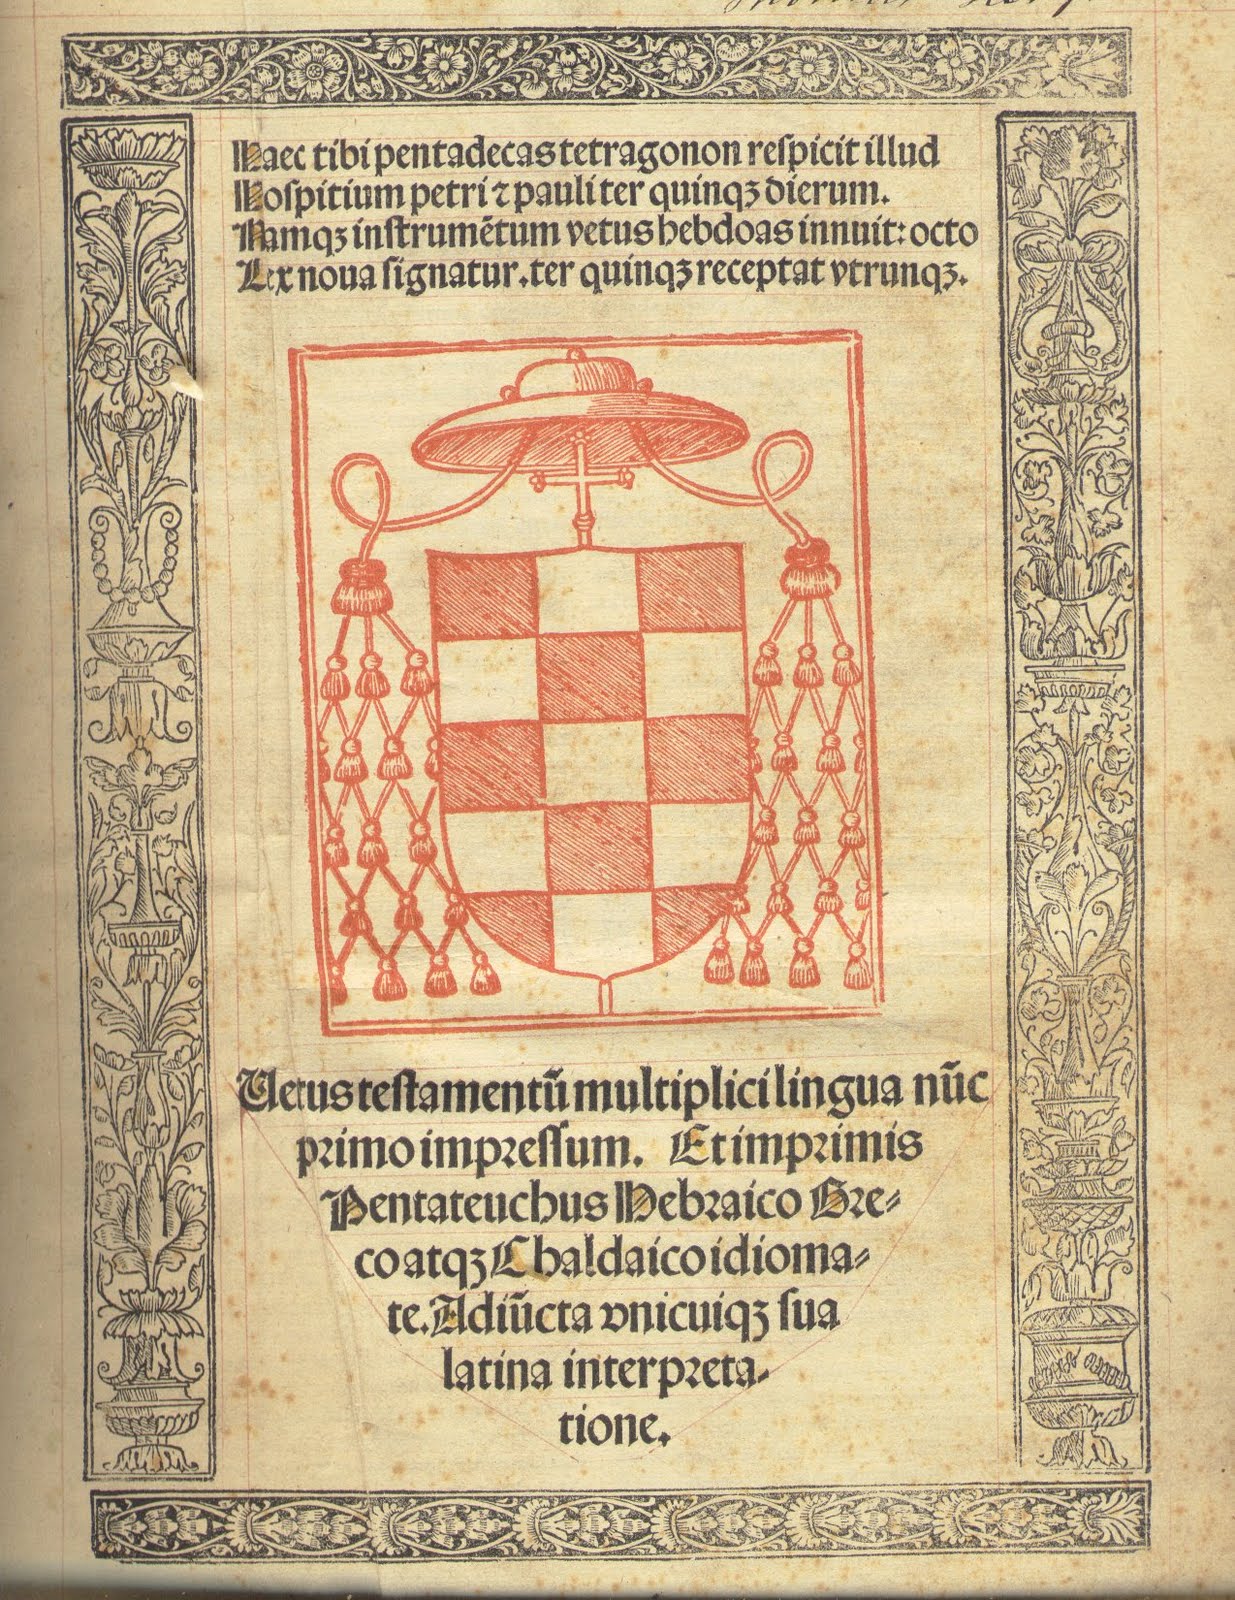 Haec tibi pentadecas tetragonon reſpicit illud
Hoſpitium petri ⁊ pauli ter quinqꝫ dierum.
Namqꝫ inſtrumētum vetus hebdoas innuit: octo
Lex noua ſignatur. ter quinqꝫ receptat vtrunqꝫ.
Uetus teſtamentū multiplici lingua nūc
primo impreſſum. Et imprimis
Pentateuchus Hebraico Gre-
co atqꝫ Chaldaico idioma-
te. Adiūcta vnicuiqꝫ ſua
latina interpreta-
tione.